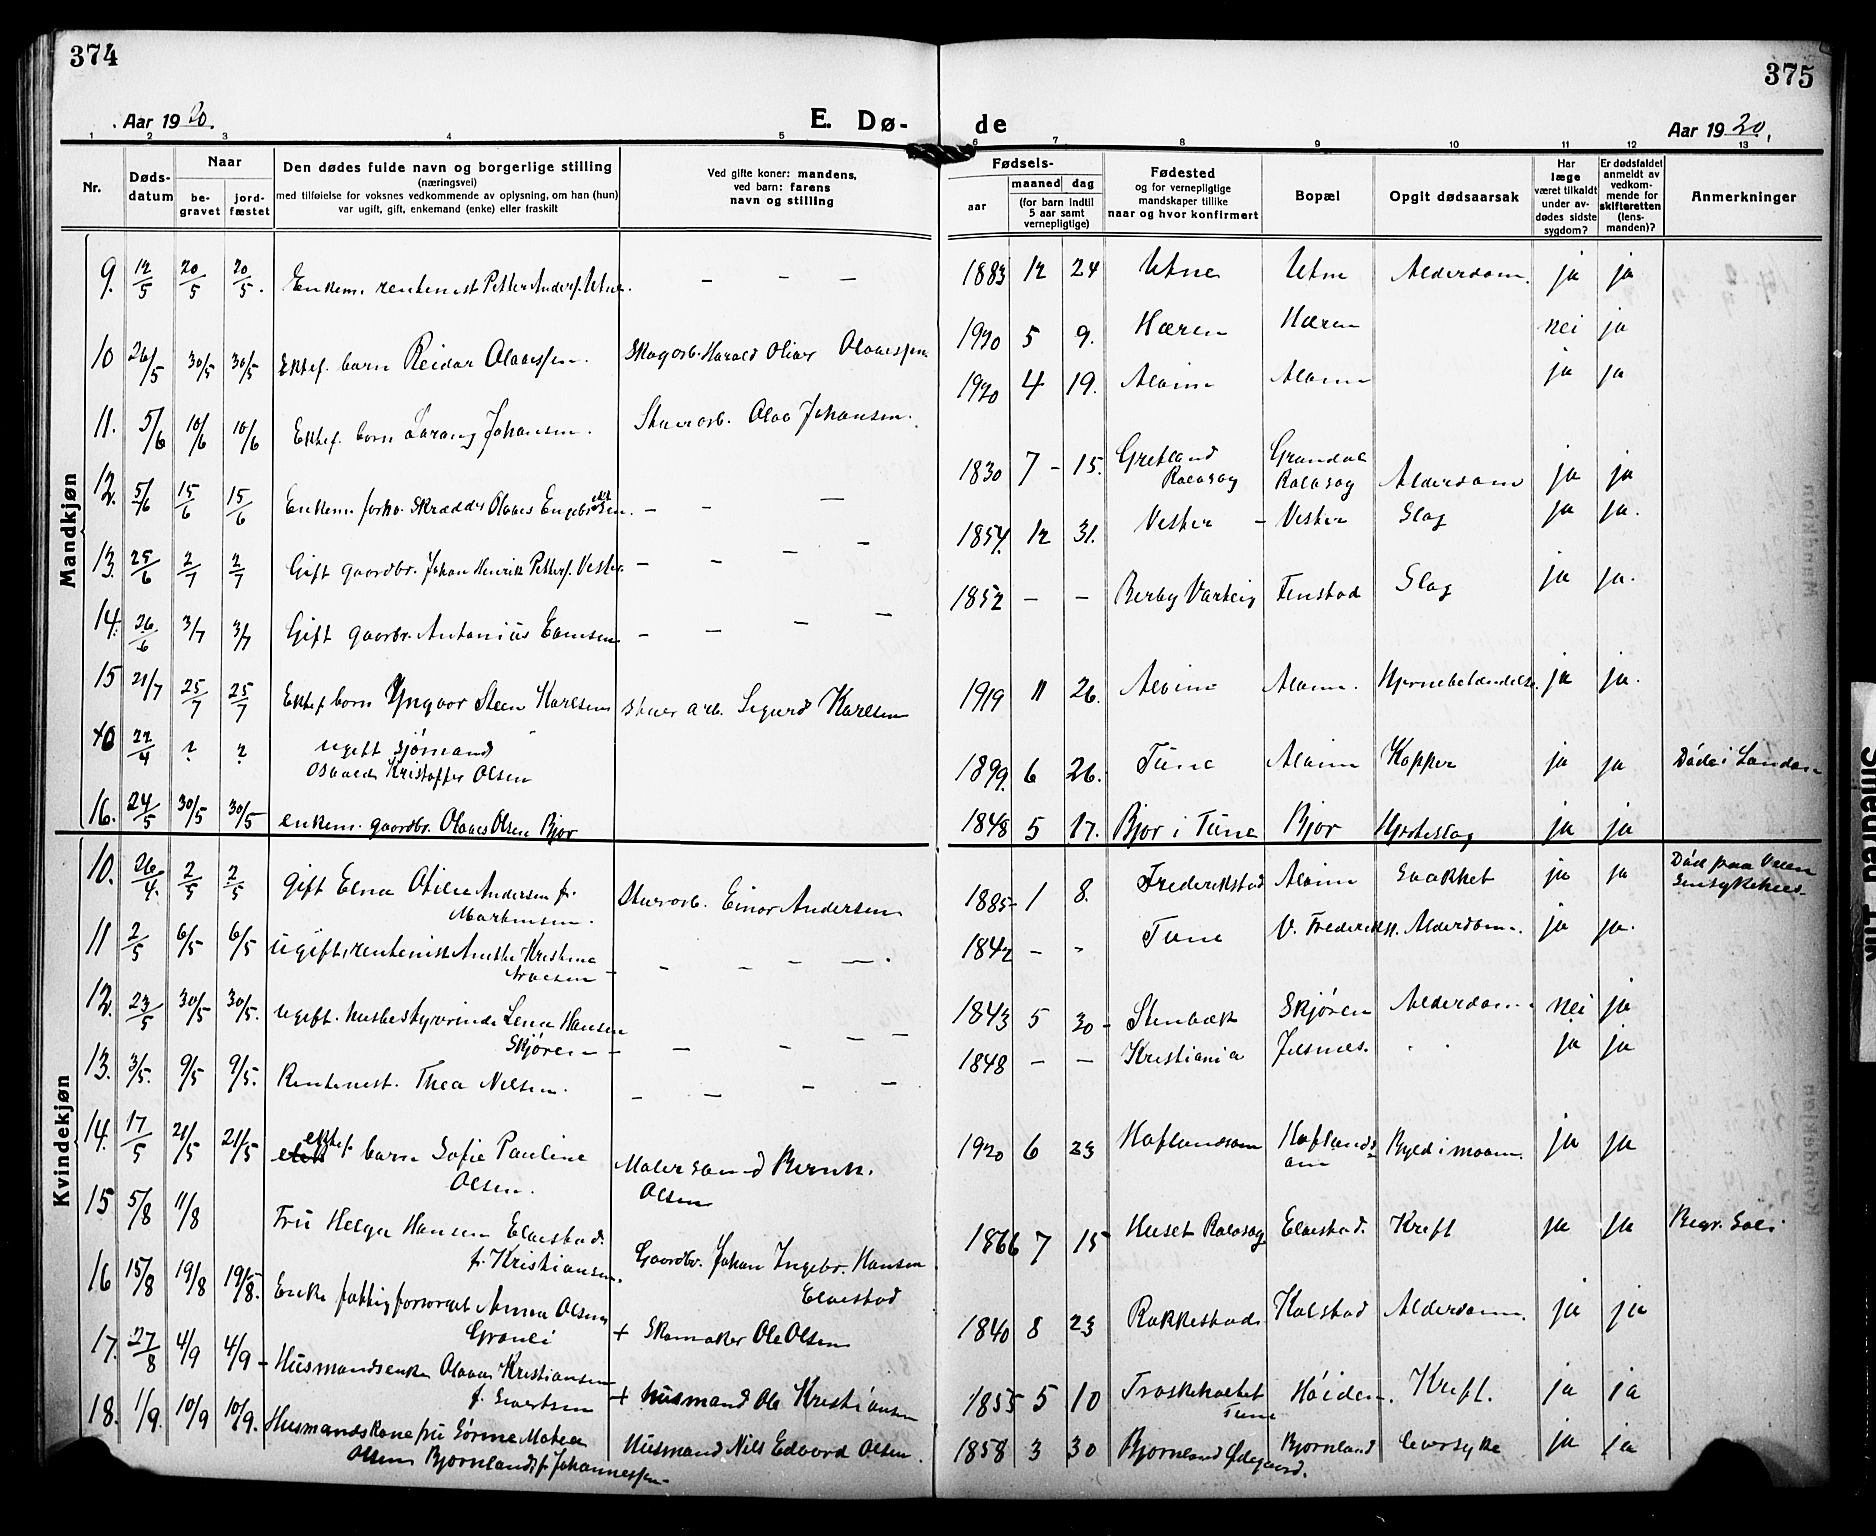 374
375
Aar 1920.
E. Dø-
de
Aar 1920.
1 2 3 4 5 6 7 8 9 10 11 12 13
Nr.
Døds-
datum
Naar
be-
gravet
jord-
fæstet
Den dødes fulde navn og borgerlige stilling
(næringsvei)
med tilføielse for voksnes vedkommende av oplysning, om han (hun)
var ugift, gift, enkemand (enke) eller fraskilt
Ved gifte koner: mandens,
ved barn: farens
navn og stilling
Fødsels-
aar
maaned dag
(for barn indtil
5 aar samt
vernepligtige)
Fødested
og for vernepligtige
mandskaper tillike
naar og hvor konfirmert
Bopæl
Opgit dødsaarsak
Har
læge
været tilkaldt
under av-
dødes sidste
sygdom?
Er dødsfaldet
anmeldt av
vedkom-
mende for
skifteretten
(lens-
manden)?
Anmerkninger
Mandkjøn
9. 12/5 20/5 20/5. Enkem. rentenist Petter Anders. Utne. — — — 1883 12 24 Utne Utne Alderdom. ja ja
10 26/5 30/5 30/5 Ektef. barn Reidar Olavessen. Skogarb. Harald Oliver Olavessen 1920 5 9. Hæren Hæren nei ja
11. 5/6 10/6 10/6 Ektef. barn Johansen. Stuerarb. Olav Johansen. 1920 4 19. Alvim Alvim ja ja
12. 5/6 15/6 15/6 Enkem. forhv. Skrædder Olaves Engebretsen. — — — 1830 7 — 15. Gretland Rolvsøy Grandal Rolvsøy Alderdom ja ja
13. 25/6 2/7 2/7 Gift gaardbr. Johan Henrik Petters. Vister — — — — 1854. 12 31. Vister — Vister Slag ja ja.
14. 26/6 3/7 3/7 Gift gaarbr. Antonius — — — — 1852 — — Berby Varteig Tenstad Slag ja ja.
15 21/7 25/7 25/7 Ektef barn Yngvar Steen Karlsen Stuer arb. Sigurd Karlsen 1919 11 26. Alvim Alvim. Hjernebetændelse. ja ja.
22/4 ? ? ugift sjømand
Osvald Kristoffer Olsen 1899. 6 26. Tune Alvim Kopper ja ja Døde i London
16. 24/5 30/5 30/5 enkem. gaardbr. Olaves Olsen Bjor 1848 5 17. Bjor i Tune Bjor Hjerteslag ja ja
Kvindekjøn
10. 26/4. 2/5 2/5 Gift Elna Otilie Andersen f.
Martinsen. Stuerarb. Einar Andersen 1885 1 8. Frederikstad Alvim Svakhet ja ja Død paa Veien
Sinsykehus.
11 2/5 6/5 6/5 ugift, rentenist Anethe Kristine — — — — . 1842 — - Tune V. Frederikst. Alderdom. ja ja.
12. 23/5 30/5 30/5. ugift. husbestyrerinde Lena Hansen
Skjøren — — — — — 1843 5 30 - Stenbæk Skjøren Alderdom. nei ja
13. 3/5. 9/5 9/5. Rentenist. Thea Nilsen. — — — — 1848 — — Kristiania Jelsnes. . . ja ja
14. 17/5 21/5 21/5 ektef. barn Sofie Pauline
Olsen. Malersvend Bernh.
Olsen 1920 6 23 Haflundsøen Haflunds-
øen Byld i maven. ja ja
15 5/8 11/8 Fru Helga Hansen Elvestad.
f. Kristiansen. Gaardbr. Johan Ingebr. Hansen
Elvestad 1866 7 15 Huset Rolvsøy Elvestad. Kreft ja ja Begr. Soli
16 15/8 19/8 19/8. Enke fattigforsørget Anna Olsen
Grønli + Skomaker Ole Olsen 1840 8 23 Rakkestad Kalstad Alderdom. ja ja
17. 27/8 4/9 4/9 - Husmandsenke Olava Kristiansen
f. Sivertsen + husmand Ole Kristiansen 1855 5 10 Troskeholtet
Tune Høiden. Kreft. ja ja
18. 1/9. 10/9 10/9. Husmandskone fru Sørine Matea
Olsen Bjørnland f. Johannessen Husmand Nils Edvard Olsen. 1858 3 30 Bjørnland Ødegaard. Bjørnland Leversyke ja ja